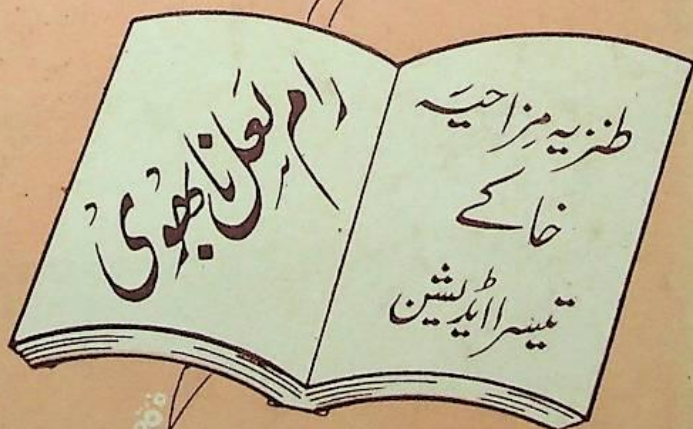 طنزیہ مزاحیہ
خاکے
تیسرا ایڈیشن
رام لعل نابھوی